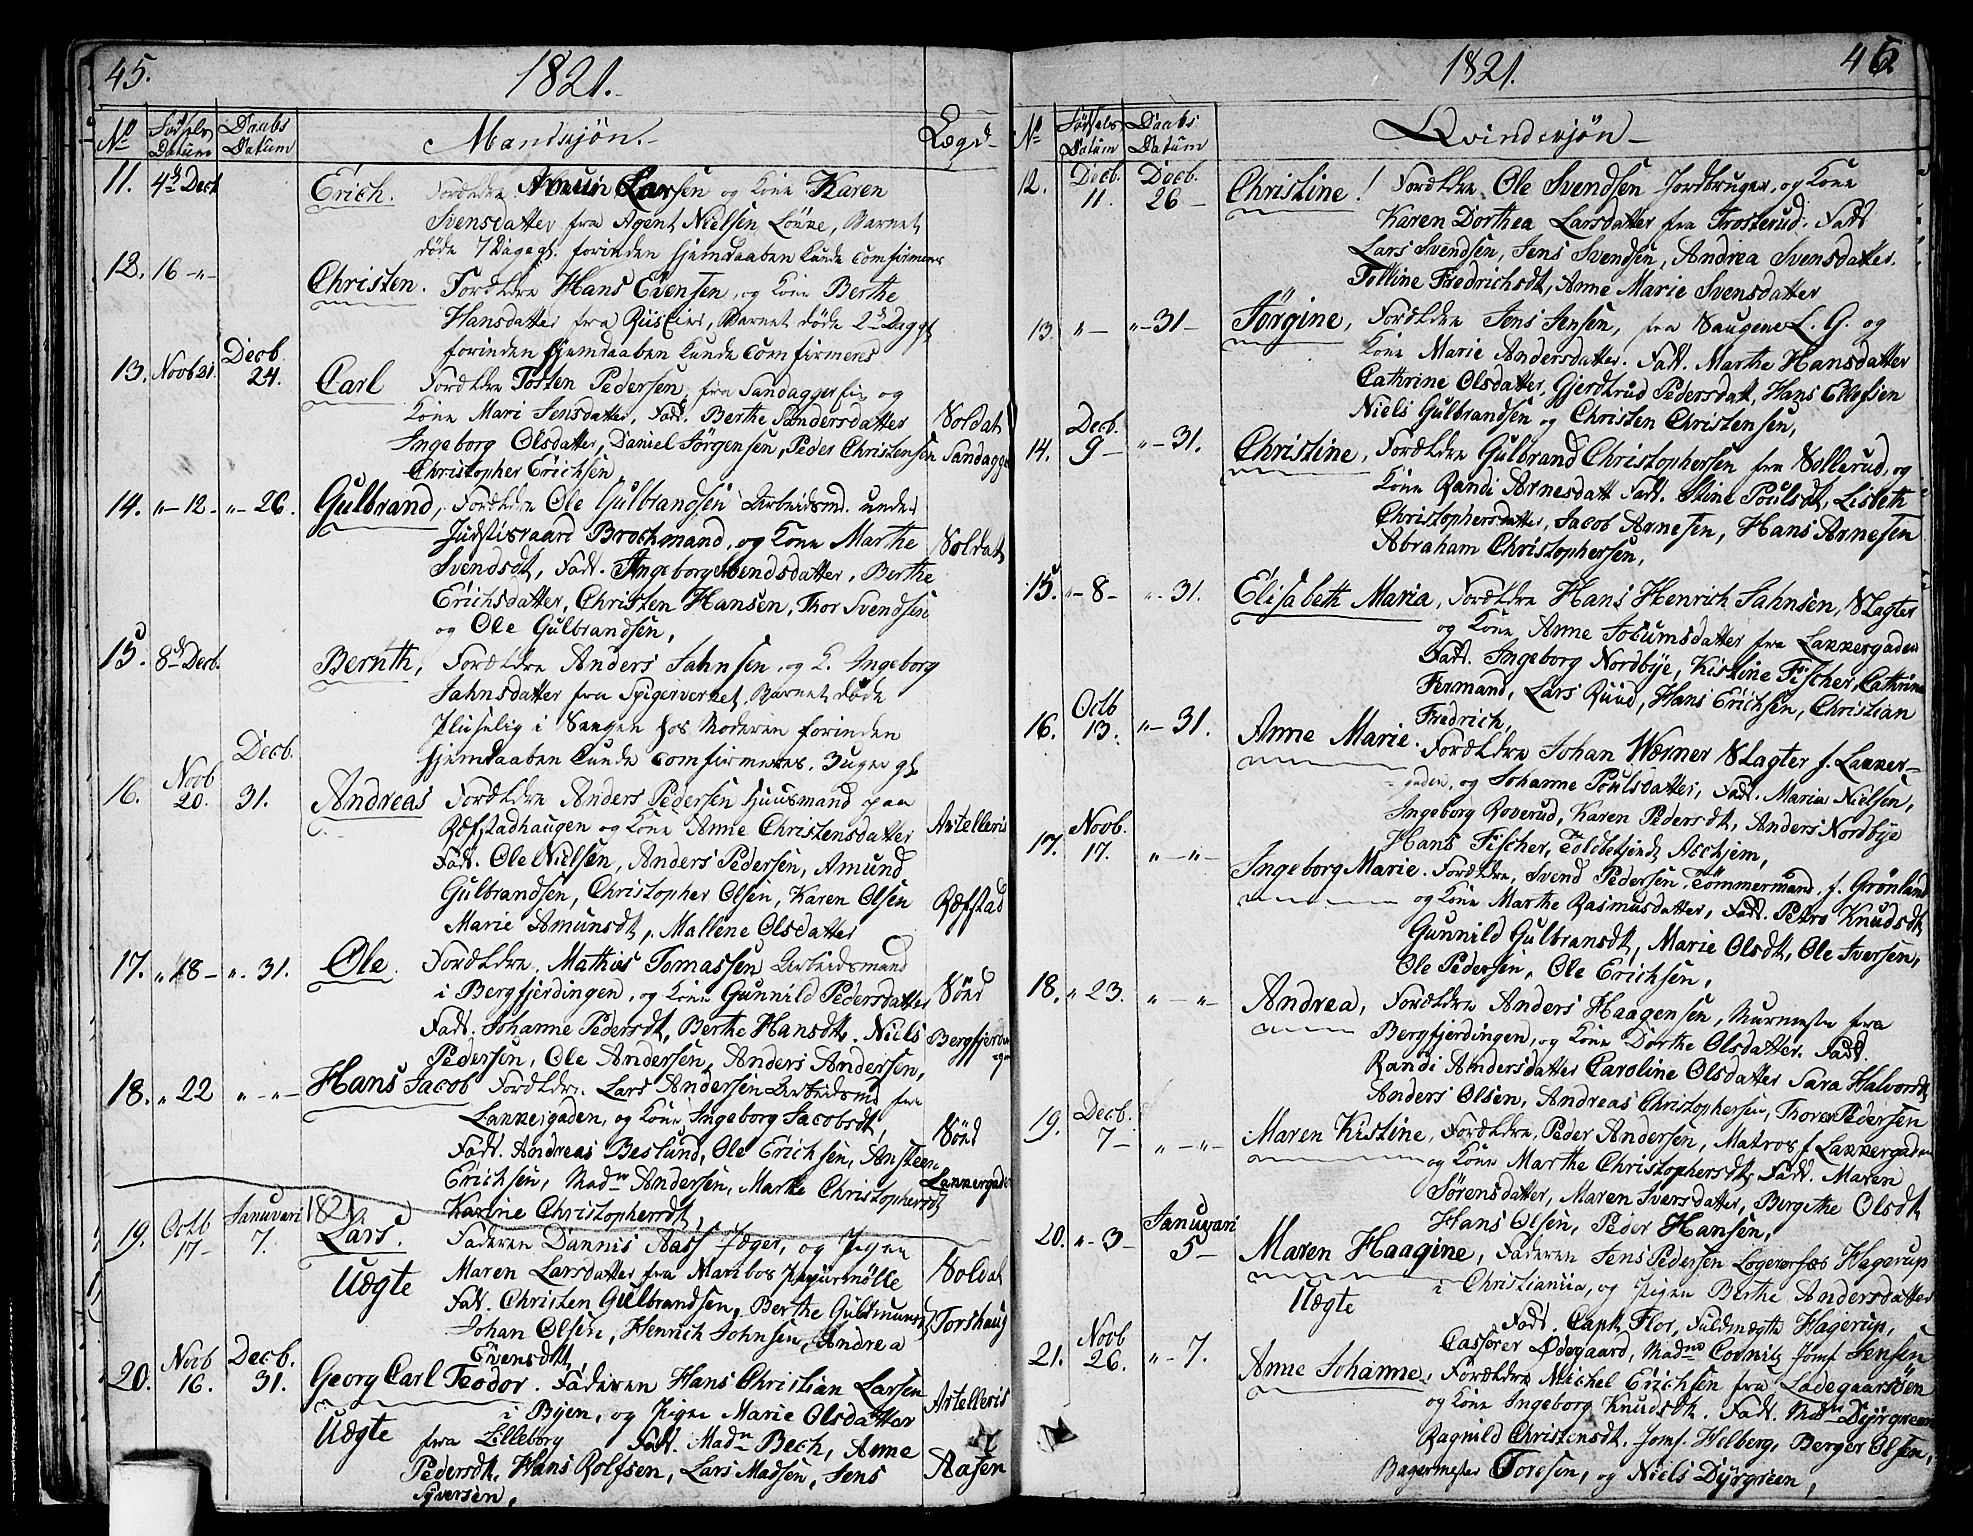 45.
1821.
No
Fødsels Datum
Daabs Datum
Mandkjøn.
Lægd
11. 4de Decb
Erich. Forældre Amun Larsen og Kone Karen
Svensdatter fra Agent Nielsen Løkke, Barnet
døde 7 Dage gl. forinden hjemdaaben kunde comfirmeres
12. 16 -"-
Christen. Forældre Hans Evensen, og Kone Berthe
Hansdatter fra Barnet døde 2de Dag gl.
forinden hjemdaaben kunde comfirmeres
13. Novb 21. Decb. 24.
Carl Forældre Tosten Pedersen, fra og
Kone Mari Jensdatter, Fad. Berthe Sandersdatter
Soldat
Ingeborg Olsdatter, Daniel Jørgensen, Peder Christensen
Christopher Erichsen
14. "-12- "-26.
Gulbrand, Forældre Ole Gulbrandsen Arbeidsmd. under
Brochmand, og Kone Marthe
Soldat
Svendsdt, Fad. Ingeborg Svendsdatter, Berthe
Erichsdatter, Christen Hansen, Thor Svendsen
og Ole Gulbrandsen,
15. 8de Decb.
Bernth, Forældre Anders Jahnsen, og K. Ingeborg
Jahnsdatter fra Spigerverket, Barnet døde
Pludselig i Sengen hos Moderen forinden
hjemdaaben kunde comfirmeres. 3 uger gl.
16. Novb 20. Decb. 31.
Andreas Forældre Anders Pedersen Huusmand paa
Refstadhaugen og Kone Anne Christensdatter
Artelleris
Fad. Ole Nielsen, Anders Pedersen, Amund
Gulbrandsen, Christopher Olsen, Karen Olsen
Refstad
Marie Amunsdt, Mallene Olsdatter
17. "18- ". 31.
Ole. Forældre. Mathies Tomassen Arbeidsmand
i Bergfjerdingen, og Kone Gunnild Pedersdatter
Fad. Johanne Pedersdt, Berthe Hansdt. Niels
Pedersen, Ole Andersen, Anders Andersen,
18. "22 "-"-
Hans Jacob Forældre. Lars Andersen Arbeidsmd fra
Lakkergaden, og Kone Ingeborg Jacobsdt,
Fad. Andreas Beslund, Ole Erichsen, Ansteen
Erichsen, Madm Andersen, Marthe Christophersdt
Lakkergaden
Karine Christophersdt,
19. Octb 17- Januvari 7. 1821
Lars. Faderen Dannis Aass Jæger, og Pigen
Uægte
Maren Larsdatter fra Maribos Papiirmølle
Soldat
Fad. Christen Gulbrandsen, Berthe
Torshaug
Johan Olsen, Henrich Johnsen, Andrea
Evensdtt
20. Novb 16. Decb. 31.
Georg Carl Teodor. Faderen Hans Christian Larsen
i Byen, og Pigen Marie Olsdatter
Artelleris
Uægte
fra Lilleborg Fad. Madm Bech, Anne
Pedersdt, Hans Rolfsen, Lars Madsen, Jens
Aasen
Syversen,
1821.
46
No
Fødsels Datum
Daabs Datum
Qvindekjøn
12. Decb. 11. Decb. 26-
Christine! Forældre, Ole Svendsen Jordbruger, og Kone
Karen Dorthea Larsdatter fra Trosterud. Fad.
Lars Svendsen, Jens Svendsen, Andrea Svensdatter.
Tolline Fredrichsdt, Anne Marie Svensdatter
13. "- "-31-
Jørgine, Forældre Jens Jensen, fra Saugene L. G. og
Kone Marie Andersdatter. Fad. Marthe Hansdatter
Cathrine Olsdatter, Gjerdtrud Pedersdatt, Hans Ellefsen
Niels Gulbrandsen og Christen Christensen,
14. Decb. 9- "-31.
Christine, Forældre Gulbrand Christophersen fra Sollerud, og
Kone Randi Arnesdatt Fad. Stine Poulsdt, Lisbeth
Christophersdatter, Jacob Arnesen, Hans Arnesen
Abraham Christophersen,
15. "-8- ". 31.
Elisabeth Maria, Forældre Hans Henrich Jahnsen, Slagter
og Kone Anne Jocumsdatter fra Lakkergaden
Fad. Ingeborg Nordbye, Kistine Fischer, Cathrine
Fermand, Lars Ruud, Hans Erichsen, Christian
Fredrich,
16. Octb 13. "-31.
Anne Marie. Forældre Johan Wærner Slagter f. Lakker-
gaden, og Johanne Poulsdatter, Fad. Maria Nielsen,
Ingeborg Roverud, Karen Pedersdt, Anders Nordbye
Hans Fischer,
17. Novb. 17. "-"-
Ingeborg Marie. Forældre, Svend Pedersen Tømmermand, f. Grønland
og Kone Marthe Rasmusdatter, Fad. Petro Knudsdt
Gunnild Gulbransdt, Marie Olsdt, Ole Iversen,
Ole Pedersen, Ole Erichsen,
18. "23. "-"-
Andrea, Forældre Anders Haagensen, Murmester fra
Bergfjerdingen, og Kone Dorthe Olsdatter. Fad.
Randi Andersdatter Caroline Olsdatter Sara Halvorsdt,
Anders Olsen, Andreas Christophersen, Thorer Pedersen
19. Decb. 7- "-"-
Maren Kistine, Forældre, Peder Andersen, Matros f Lakkergaden
og Kone Marthe Christophersdt, Fad. Maren
Sørensdatter, Maren Iversdatter, Bergithe Olsdt
Hans Olsen, Peder Hansen,
20. "-3- Januvari 5-
Maren Haagine, Faderen Jens Pedersen Hagerup
i Christiania, og Pigen Berthe Andersdatter
Uægte
Fad. Capt. Flor, Fuldmægte Hagerup,
Casserer Ødegaard, Madme Jomf Jensen
21. Novb 26. "-7.
Anne Johanne, Forældre Michel Erichsen fra Ladegaardsøen
og Kone Ingeborg Knudsdt. Fad. Madm Dyrgreen
Ragnild Christensdt. Jomf. Helberg, Berger Olsen,
Bagermester Toresen, og Niels Dyrgreen,